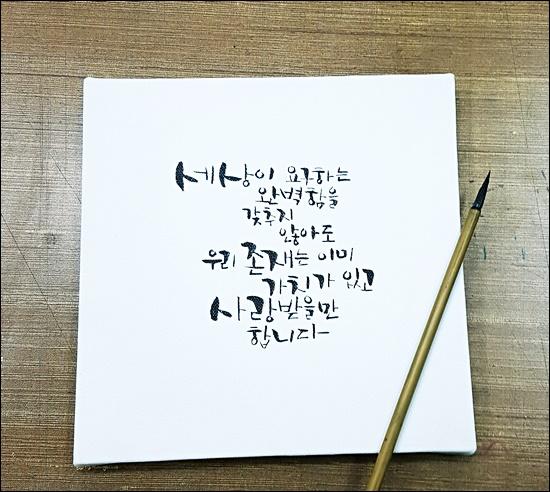 세상이 요구하는
완벽함을
갖추지
않아도
우리 존재는 이미
가치가 있고
사랑받을만
합니다